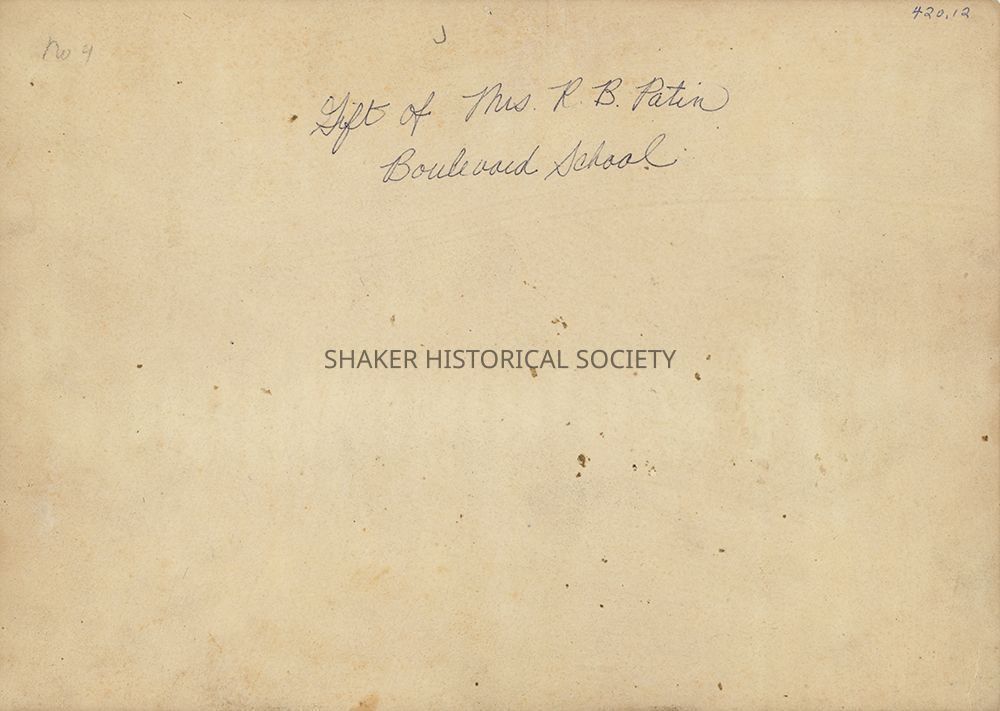 420.12
No 4
Gift of Mrs. R. B. Patin
Boulevard School
SHAKER HISTORICAL SOCIETY